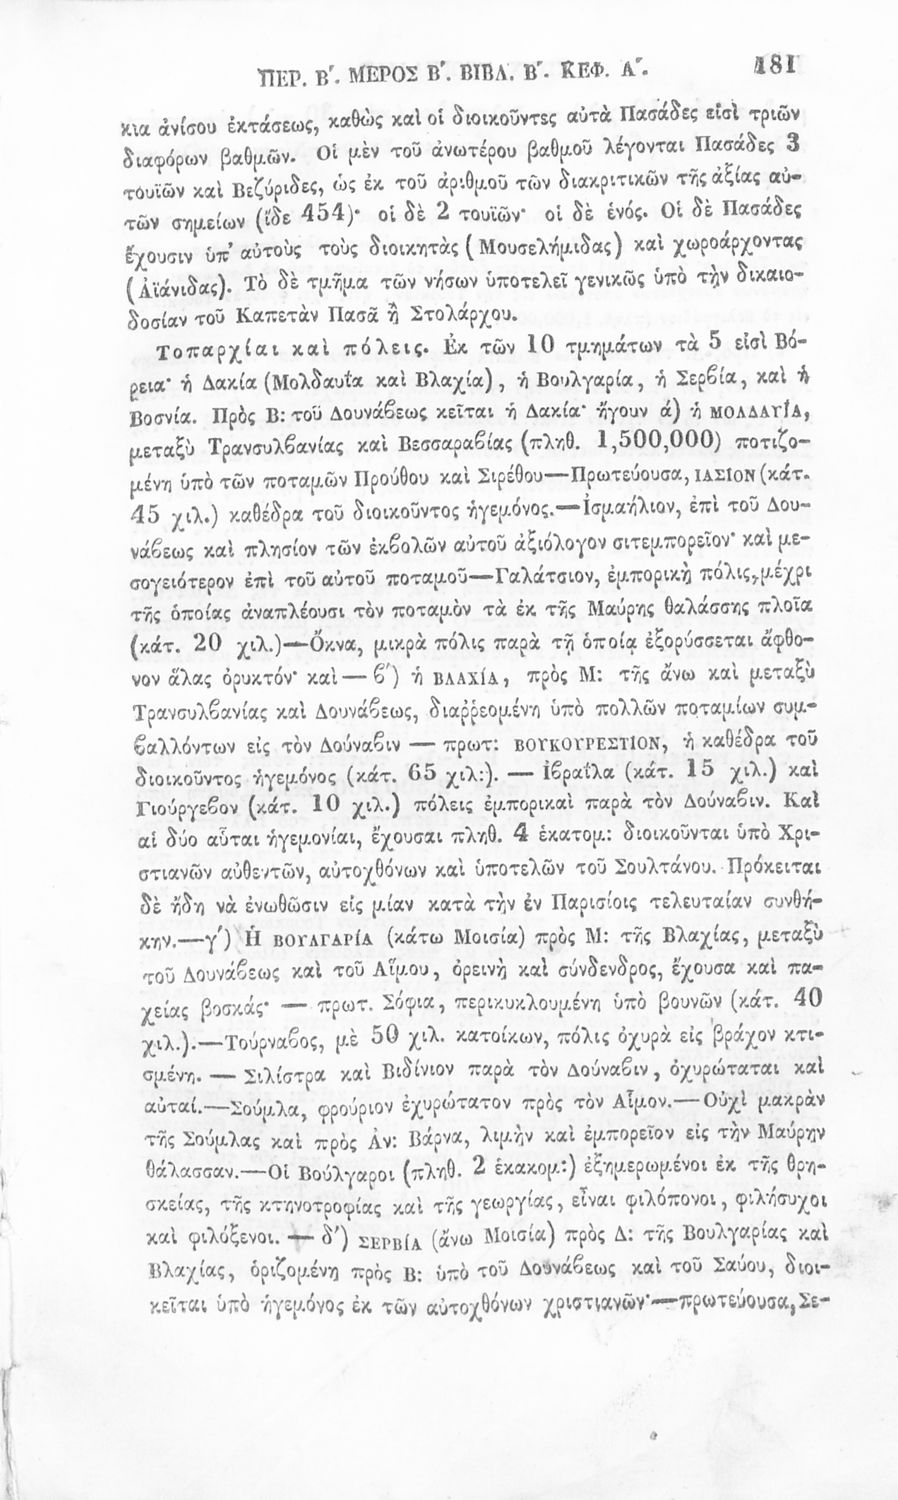 ΠΕΡ. Β΄. ΜΕΡΟΣ Β΄. ΒΙΒΛ. Β΄. ΚΕΦ. Α΄. 181
κια ἀνίσου ἐκτάσεως, καθὼς καὶ οἱ διοικοῦντες αὐτὰ Πασάδες εἰσὶ τριῶν
διαφόρων βαθμῶν. Οἱ μὲν τοῦ ἀνωτέρου βαθμοῦ λέγονται Πασάδες 3
τουϊῶν καὶ Βεζύριδες, ὡς ἐκ τοῦ ἀριθμοῦ τῶν διακριτικῶν τῆς ἀξίας αὐ-
τῶν σημείων (ἴδε 454)· οἱ δὲ 2 τουϊῶν· οἱ δὲ ἑνός. Οἱ δὲ Πασάδες
ἔχουσιν ὑπ' αὐτοὺς τοὺς διοικητὰς (Μουσελήμιδας) καὶ χωροάρχοντας
(Ἀϊάνιδας). Τὸ δὲ τμῆμα τῶν νήσων ὑποτελεῖ γενικῶς ὑπὸ τὴν δικαιο-
δοσίαν τοῦ Καπετὰν Πασᾶ ἢ Στολάρχου.
Τοπαρχίαι καὶ πόλεις. Ἐκ τῶν 10 τμημάτων τὰ 5 εἰσὶ Βό-
ρεια· ἡ Δακία (Μολδαυΐα καὶ Βλαχία), ἡ Βουλγαρία, ἡ Σερβία, καὶ ἡ
Βοσνία. Πρὸς Β: τοῦ Δουνάβεως κεῖται ἡ Δακία· ἤγουν ά) ἡ ΜΟΛΔΑΥΪΑ,
μεταξὺ Τρανσυλβανίας καὶ Βεσσαραβίας (πληθ. 1,500,000) ποτιζο-
μένη ὑπὸ τῶν ποταμῶν Προύθου καὶ Σιρέθου—Πρωτεύουσα, ΙΑΣΙΟΝ (κάτ.
45 χιλ.) καθέδρα τοῦ διοικοῦντος ἡγεμόνος.—Ἰσμαήλιον, ἐπὶ τοῦ Δου-
νάβεως καὶ πλησίον τῶν ἐκβολῶν αὐτοῦ ἀξιόλογον σιτεμπορεῖον· καὶ με-
σογειότερον ἐπὶ τοῦ αὐτοῦ ποταμοῦ—Γαλάτσιον, ἐμπορικὴ πόλις, μέχρι
τῆς ὁποίας ἀναπλέουσι τὸν ποταμὸν τὰ ἐκ τῆς Μαύρης θαλάσσης πλοῖα
(κάτ. 20 χιλ.)—Ὄκνα, μικρὰ πόλις παρὰ τῇ ὁποίᾳ ἐξορύσσεται ἄφθο-
νον ἅλας ὀρυκτόν· καὶ — β΄) ἡ ΒΛΑΧΊΑ, πρὸς Μ: τῆς ἄνω καὶ μεταξὺ
Τρανσυλβανίας καὶ Δουνάβεως, διαῤῥεομένη ὑπὸ πολλῶν ποταμίων συμ-
βαλλόντων εἰς τὸν Δούναβιν — πρωτ: ΒΟΥΚΟΥΡΕΣΤΙΟΝ, ἡ καθέδρα τοῦ
διοικοῦντος ἡγεμόνος (κάτ. 65 χιλ:). — Ἰβραΐλα (κάτ. 15 χιλ.) καὶ
Γιούργεβον (κάτ. 10 χιλ.) πόλεις ἐμπορικαὶ παρὰ τὸν Δούναβιν. Καὶ
αἱ δύο αὗται ἡγεμονίαι, ἔχουσαι πληθ. 4 ἑκατομ: διοικοῦνται ὑπὸ Χρι-
στιανῶν αὐθεντῶν, αὐτοχθόνων καὶ ὑποτελῶν τοῦ Σουλτάνου. Πρόκειται
δὲ ἤδη νὰ ἑνωθῶσιν εἰς μίαν κατὰ τὴν ἐν Παρισίοις τελευταίαν συνθή-
κην.—γ΄) Ἡ ΒΟΥΛΓΑΡΊΑ (κάτω Μοισία) πρὸς Μ: τῆς Βλαχίας, μεταξὺ
τοῦ Δουνάβεως καὶ τοῦ Αἵμου, ὀρεινὴ καὶ σύνδενδρος, ἔχουσα καὶ πα-
χείας βοσκάς· — πρωτ. Σόφια, περικυκλουμένη ὑπὸ βουνῶν (κάτ. 40
χιλ.).—Τούρναβος, μὲ 50 χιλ. κατοίκων, πόλις ὀχυρὰ εἰς βράχον κτι-
σμένη. — Σιλίστρα καὶ Βιδίνιον παρὰ τὸν Δούναβιν, ὀχυρώταται καὶ
αὐταί.—Σούμλα, φρούριον ἐχυρώτατον πρὸς τὸν Αἷμον.—Οὐχὶ μακρὰν
τῆς Σούμλας καὶ πρὸς Ἀν: Βάρνα, λιμὴν καὶ ἐμπορεῖον εἰς τὴν Μαύρην
θάλασσαν.—Οἱ Βούλγαροι (πληθ. 2 ἑκακομ:) ἐξημερωμένοι ἐκ τῆς θρη-
σκείας, τῆς κτηνοτροφίας καὶ τῆς γεωργίας, εἶναι φιλόπονοι, φιλήσυχοι
καὶ φιλόξενοι. — δ΄) ΣΕΡΒΊΑ (ἄνω Μοισία) πρὸς Δ: τῆς Βουλγαρίας καὶ
Βλαχίας, ὁριζομένη πρὸς Β: ὑπὸ τοῦ Δουνάβεως καὶ τοῦ Σαύου, διοι-
κεῖται ὑπὸ ἡγεμόνος ἐκ τῶν αὐτοχθόνων χριστιανῶν·—πρωτεύουσα, Σε-